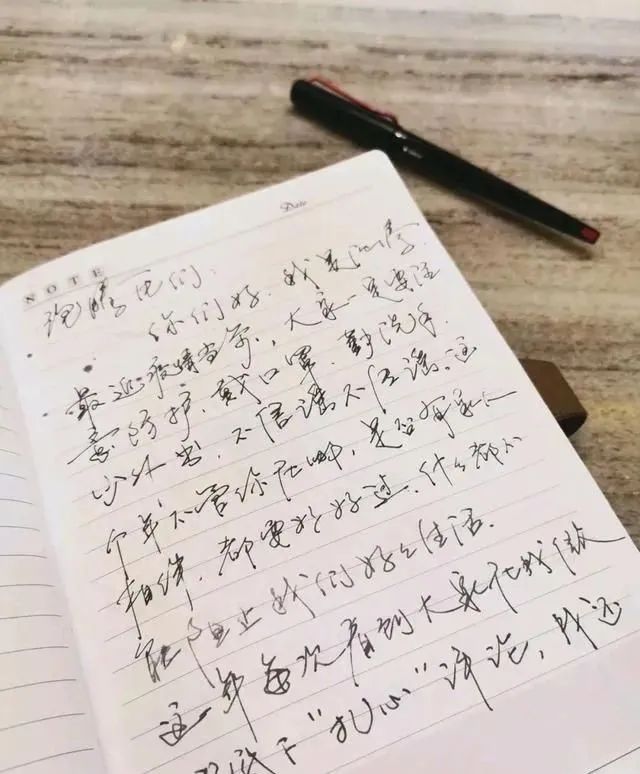 NOTE
Date
们:
你们好.我是
最近疫情当前,大家一定要注
意防护,戴口罩,勤洗手.
少外出,不信谣不传谣.这
个年不管你在哪,是否有家人
相伴,都要好好过,什么都不
能阻止我们好好生活.
这年每次看到大家在我微
下"扎心"评论,我还